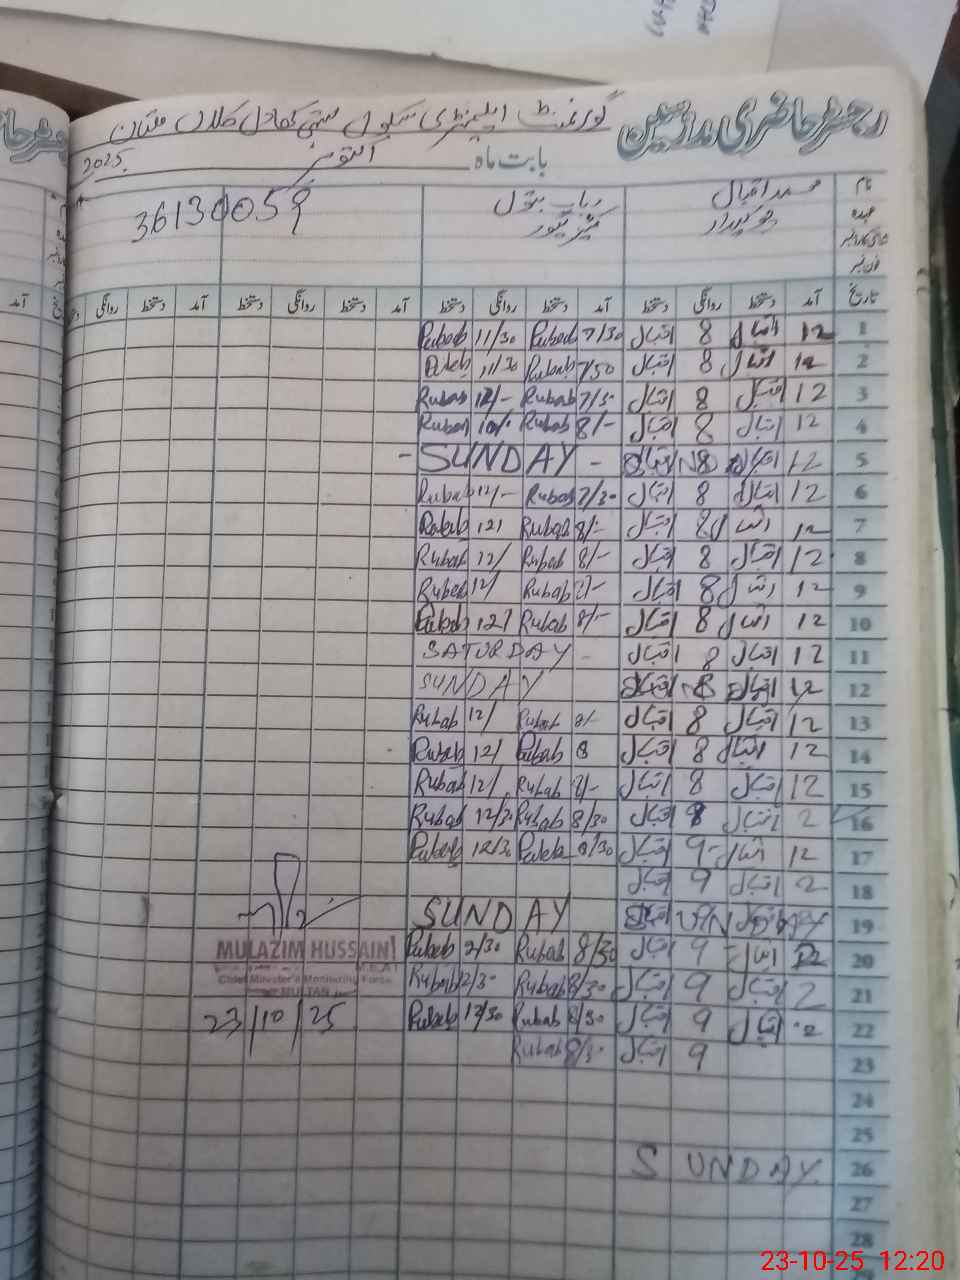 رجسٹر حاضری ملازمین گورنمنٹ ایلیمنٹری سکول کلاں ملتان
بابت ماہ اکتوبر 2025
نام محمد اقبال رباب بتول 36130059
عہدہ چوکیدار
فون نمبر
تاریخ آمد دستخط روانگی دستخط آمد دستخط روانگی دستخط آمد دستخط روانگی دستخط آمد دستخط روانگی
1 12 اقبال 8 اقبال 7/30 Rubab 11/30 Rubab
2 12 اقبال 8 اقبال 7/30 Rubab 11/30 Rubab
3 12 اقبال 8 اقبال 7/30 Rubab 12/- Rubab
4 12 اقبال 8 اقبال 8/- Rubab 10/- Rubab
5 12 اقبال 8 اقبال - SUNDAY -
6 12 اقبال 8 اقبال 7/30 Rubab 12/- Rubab
7 12 اقبال 8 اقبال 8/- Rubab 12/ Rubab
8 12 اقبال 8 اقبال 8/- Rubab 12/ Rubab
9 12 اقبال 8 اقبال 8/- Rubab 12/ Rubab
10 12 اقبال 8 اقبال 8/- Rubab 12/ Rubab
11 12 اقبال 8 اقبال SATURDAY -
12 12 اقبال 8 اقبال SUNDAY
13 12 اقبال 8 اقبال 8/- Rubab 12/ Rubab
14 12 اقبال 8 اقبال 8 Rubab 12/ Rubab
15 12 اقبال 8 اقبال 8/- Rubab 12/ Rubab
16 2 اقبال 8 اقبال 8/30 Rubab 12/30 Rubab
17 12 اقبال 9 اقبال 8/30 Rubab 12/30 Rubab
18 2 اقبال 9 اقبال
19 SUNDAY SUNDAY
20 12 اقبال 9 اقبال 8/30 Rubab 2/30 Rubab
21 2 اقبال 9 اقبال 8/30 Rubab 2/30 Rubab
22 2 اقبال 9 اقبال 8/30 Rubab 12/30 Rubab
23 9 اقبال 8/30 Rubab
24
25
26 SUNDAY
27
28
MULAZIM HUSSAIN
M.E.A
Chief Minister's Monitoring Force
MULTAN
23/10/25
23-10-25 12:20